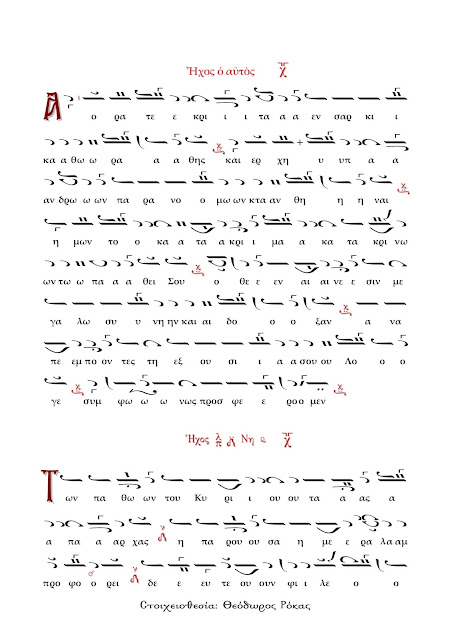 Ἦχος ὁ αὐτὸς
Α ο ρα τε ε κρι ι ι τα α α εν σαρ κι ι
κα α θω ω ρα α α θης και ερ χη υ υπ α α
αν δρω ω ων πα ρα νο ο μω ων κτα αν θη η η ναι
η μων το ο κα α τα α κρι ι μα α κα τα κρι νω
ων τω ω πα α α θει Σου ο θε ε εν αι αι νε ε σιν με
γα λω συ υ νη ην και αι δο ο ο ξαν α να
πε εμ πο ον τες τη εξ ου σι ι α α σου ου Λο ο ο
γε συμ φω ω ω νως προσ φε ε ρο ο μεν
Ἦχος Νη
Τ ων πα θω ων του Κυ ρι ι ου ου τα α ας α
α πα α αρ χας η πα ρου ου σα η με ε ρα λα αμ
προ φο ο ρει δε ε ευ τε ου ουν φι ι λε ο ο
Στοιχειοθεσία: Θεόδωρος Ρόκας